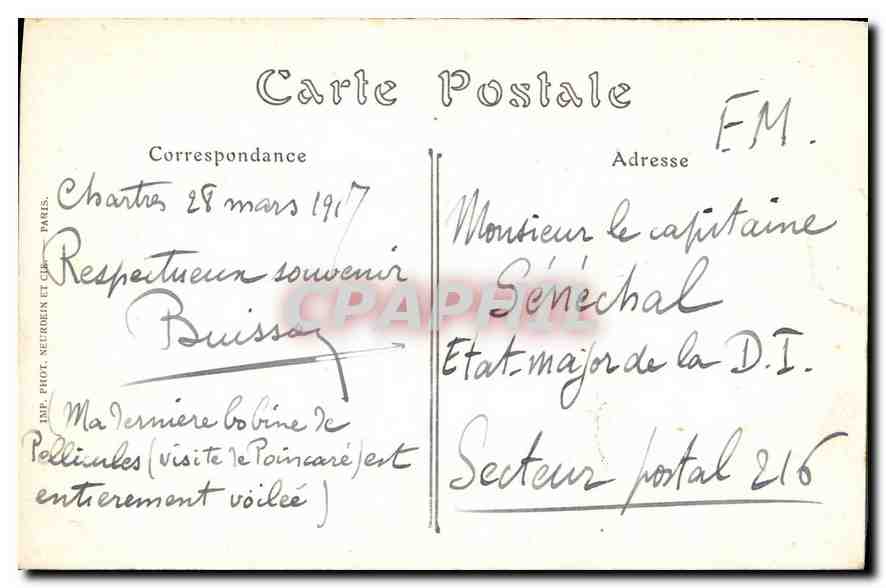 Carte Postale
F.M.
Correspondance
Adresse
Chartres 28 mars 1917
Respectueux souvenir
Buisson
(Ma dernière bobine de
Pellicules (visite de Poincaré) est
entierement voilée)
Monsieur le capitaine
Sénéchal
Etat-major de la D.I.
Secteur postal 216
IMP. PHOT. NEURDEIN ET CIE. — PARIS.
CPAPHIL